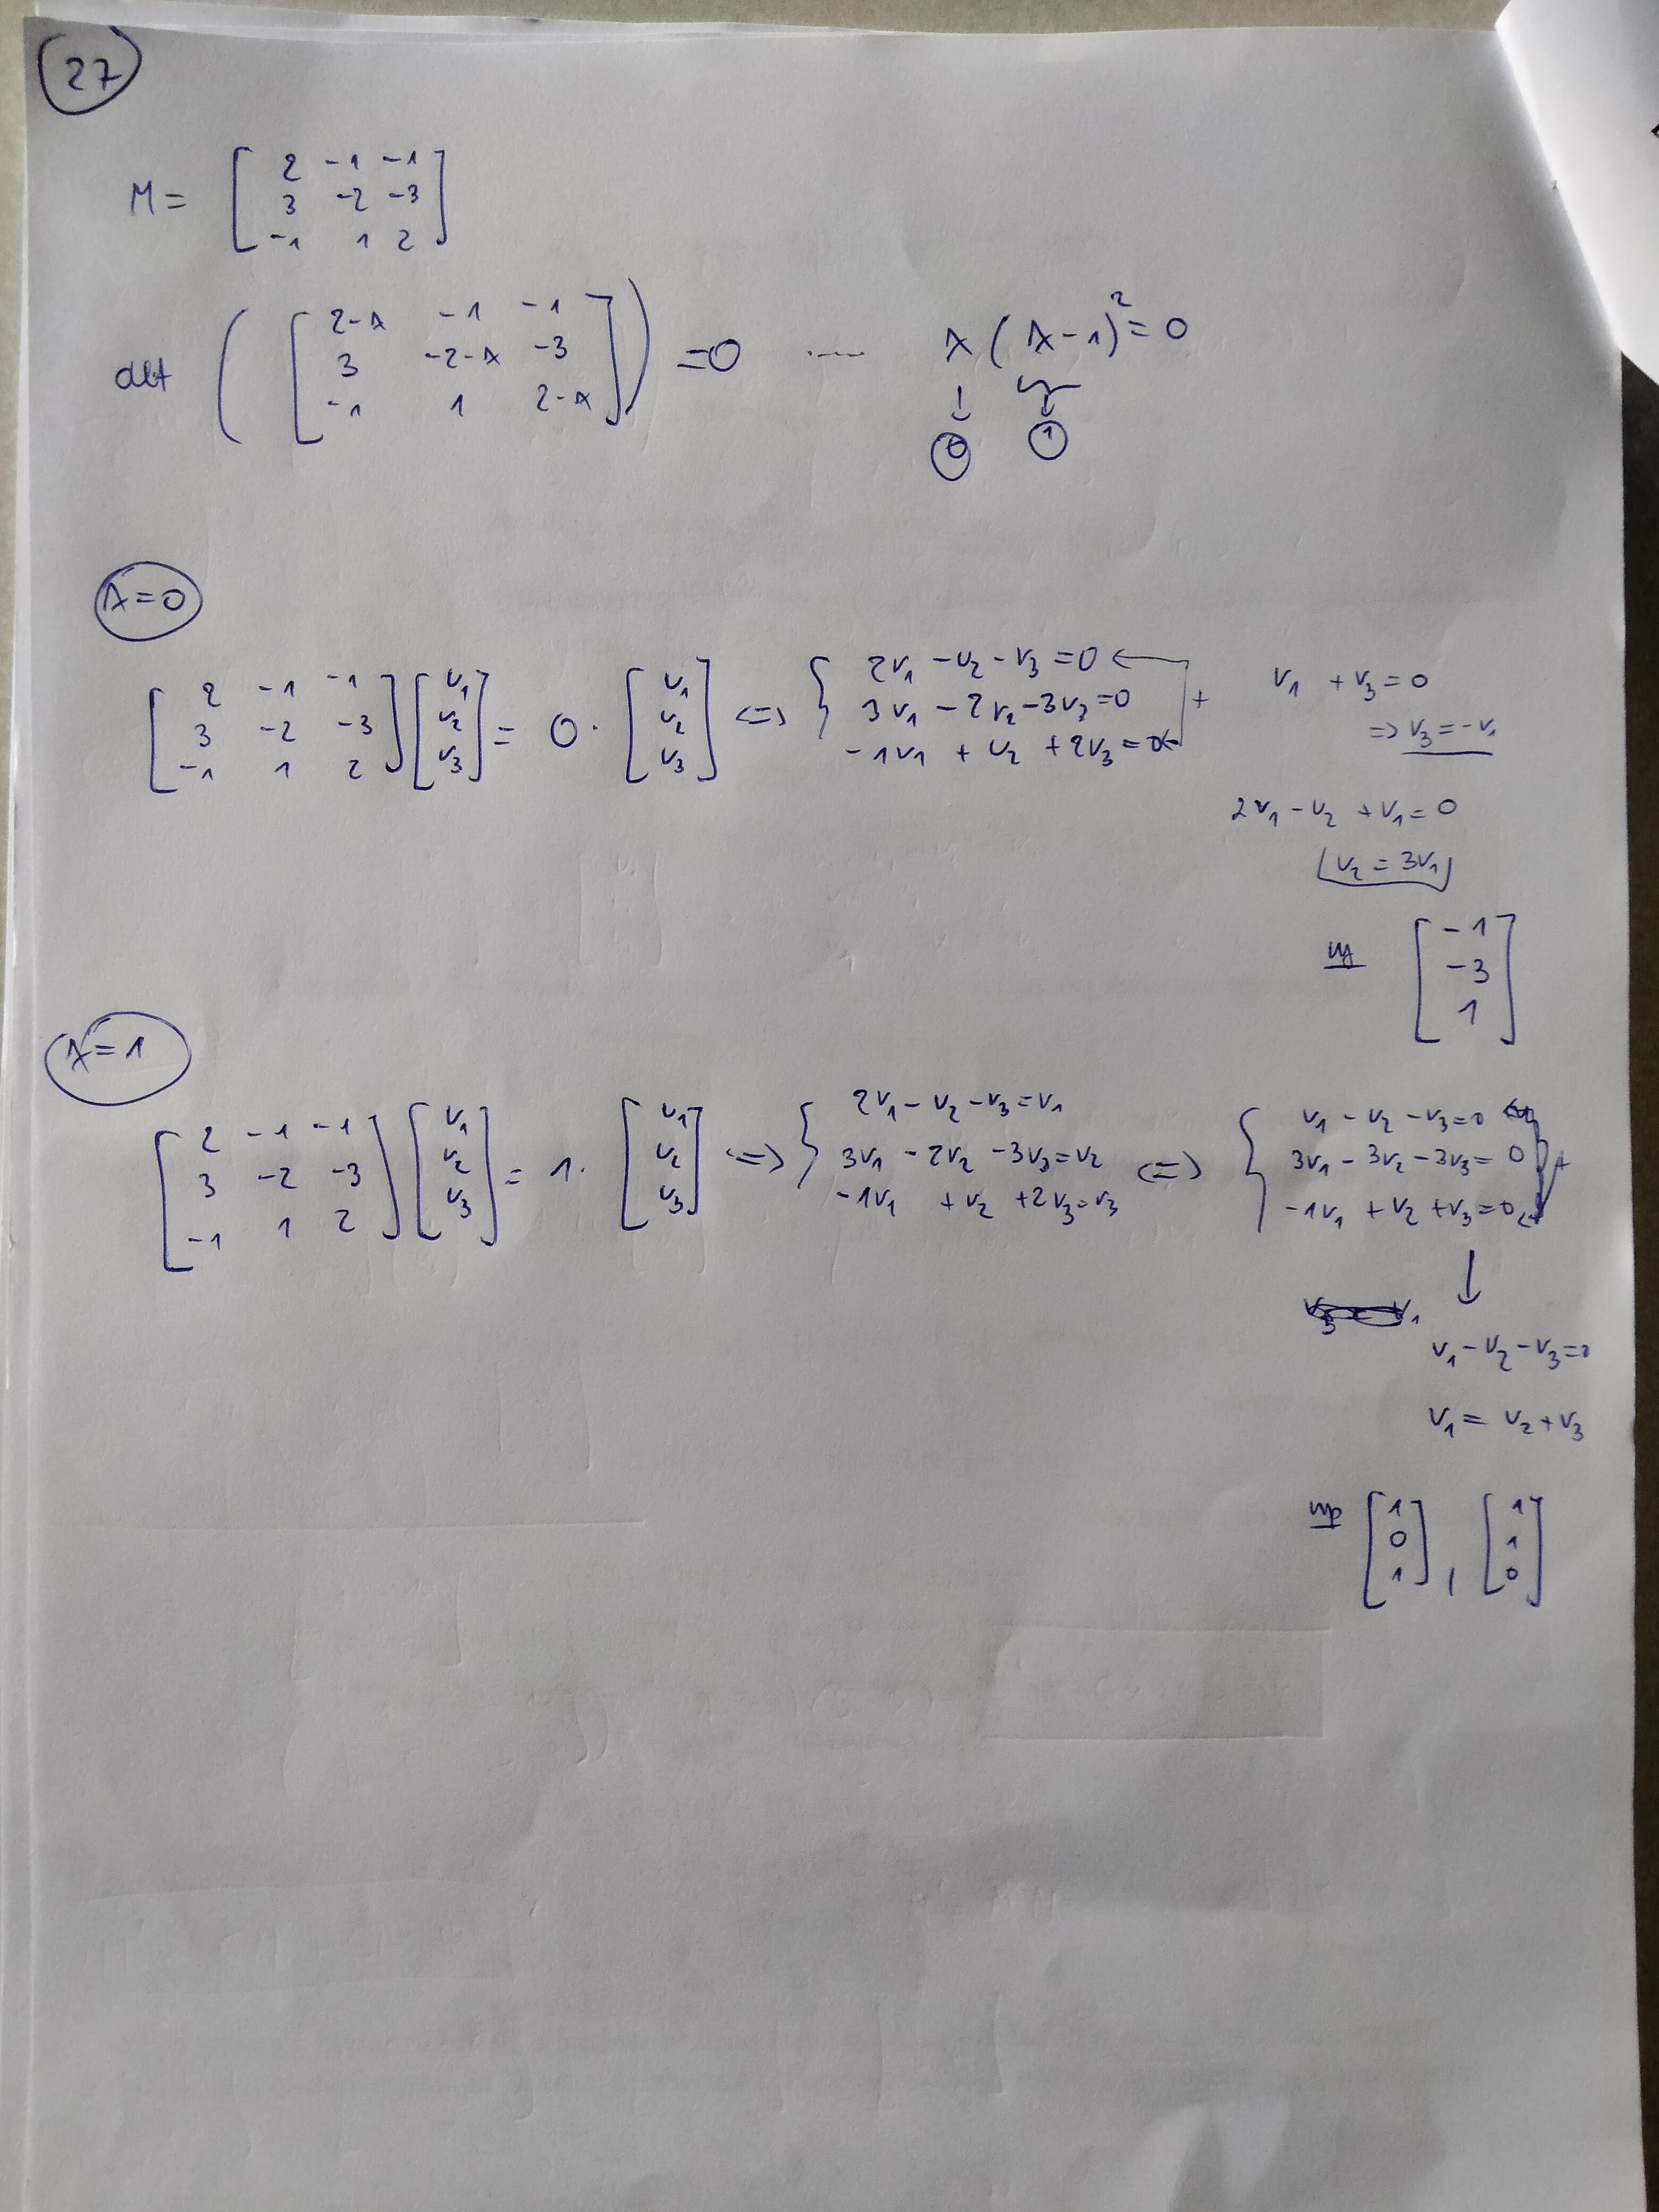 27
M = [ 2 -1 -1
3 -2 -3
-1 1 2 ]
det ( [ 2-λ -1 -1
3 -2-λ -3
-1 1 2-λ ] ) = 0 ..... λ (λ-1)² = 0
↓ ↓
0 1
λ=0
[ 2 -1 -1
3 -2 -3
-1 1 2 ] [ v₁
v₂
v₃ ] = 0 · [ v₁
v₂
v₃ ] <=> { 2v₁ - v₂ - v₃ = 0
3v₁ - 2v₂ - 3v₃ = 0
-1v₁ + v₂ + 2v₃ = 0 +
v₁ + v₃ = 0
=> v₃ = -v₁
2v₁ - v₂ + v₁ = 0
v₂ = 3v₁
[ -1
-3
1 ]
λ=1
[ 2 -1 -1
3 -2 -3
-1 1 2 ] [ v₁
v₂
v₃ ] = 1 · [ v₁
v₂
v₃ ] <=> { 2v₁ - v₂ - v₃ = v₁
3v₁ - 2v₂ - 3v₃ = v₂
-1v₁ + v₂ + 2v₃ = v₃ <=> { v₁ - v₂ - v₃ = 0
3v₁ - 3v₂ - 3v₃ = 0
-1v₁ + v₂ + v₃ = 0 +
↓
v₁ - v₂ - v₃ = 0
v₁ = v₂ + v₃
np [ 1
0
1 ] , [ 1
1
0 ]